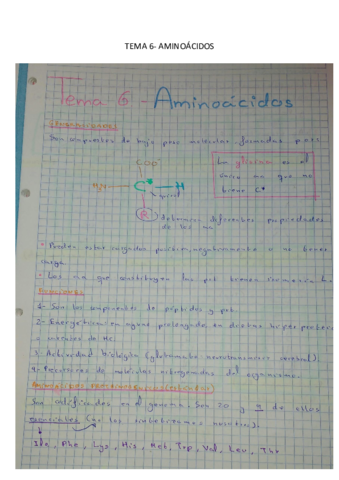 TEMA 6- AMINOÁCIDOS
Tema 6 - Aminoácidos
Son compuestos de bajo peso molecular formados por:
COO⁻
La glicina es el
único aa que no
tiene C*
H₃N C* H
quiral
R determina diferentes propiedades
de los aa
• Pueden estar cargados positiva, negativamente o no tener
carga.
• Los aa que constituyen las prot tienen
Funciones
1- Son los componentes de péptidos y prot.
2- Energética: en ayuno prolongado en dietas hiperproteicas
o carentes de HC.
3- Actividad biológica (glutamato neurotransmisor cerebral).
4- Precursores de moléculas nitrogenadas del organismo.
Son codificados en el genoma. Son 20 y 9 de ellos
esenciales (no los sintetizamos nosotros).
Ile, Phe, Lys, His, Met, Trp, Val, Leu, Thr